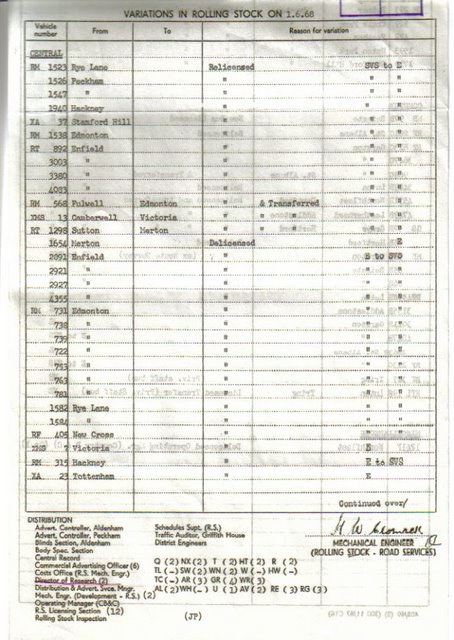 VARIATIONS IN ROLLING STOCK ON 1.6.68
Vehicle number From To Reason for variation
CENTRAL
RM 1523 Rye Lane Relicensed SVS to E
1526 Peckham " " "
1547 " " " "
1940 Hackney " " "
XA 37 Stamford Hill " " "
RM 1538 Edmonton " " "
RT 892 Enfield " " "
3003 " " " "
3380 " " " "
4083 " " " "
RM 568 Fulwell Edmonton " & Transferred " "
XMS 13 Camberwell Victoria " " " " "
RT 1298 Sutton Merton " " " " "
1654 Merton Delicensed E
2891 Enfield " E to SVS
2921 " " " "
2927 " " " "
4355 " " " "
RM 731 Edmonton " " "
738 " " " "
739 " " " "
722 " " " "
753 " " " "
763 " " " "
781 " " " "
1582 Rye Lane " " "
1584 " " " "
RF 405 New Cross " " "
XMS 7 Victoria " E
RM 315 Hackney " E to SVS
XA 23 Tottenham " E
Continued over/
DISTRIBUTION
Advert. Controller, Aldenham
Advert. Controller, Peckham
Blinds Section, Aldenham
Body Spec. Section
Central Record
Commercial Advertising Officer (6)
Costs Office (R.S. Mech. Engr.)
Director of Research (2)
Distribution & Advert. Svce. Mngr.
Mech. Engr. (Development - R.S.) (2)
Operating Manager (CB&C)
R.S. Licensing Section (12)
Rolling Stock Inspection
Schedules Supt. (R.S.)
Traffic Auditor, Griffith House
District Engineers
Q (2) NX (2) T (2) HT (2) R (2)
TL (-) SW (2) WN (2) W (-) HW (-)
TC (-) AR (3) GR (4) WR (3)
AL (2) WH (-) U (1) AV (2) RE (3) RG (3)
(JP)
MECHANICAL ENGINEER
(ROLLING STOCK - ROAD SERVICES)